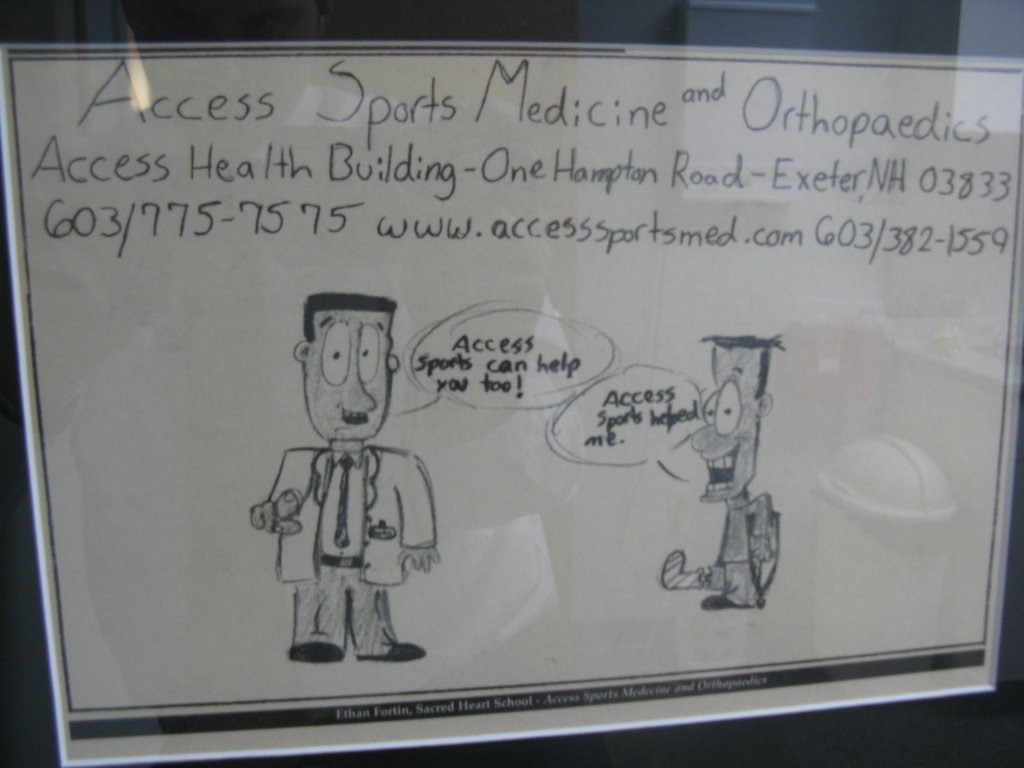 Access Sports Medicine and Orthopaedics
Access Health Building - One Hampton Road - Exeter, NH 03833
603/775-7575 www.accesssportsmed.com 603/382-1559
Access
Sports can help
you too!
Access
Sports helped
me.
Ethan Fortin, Sacred Heart School - Access Sports Medecine and Orthopaedics